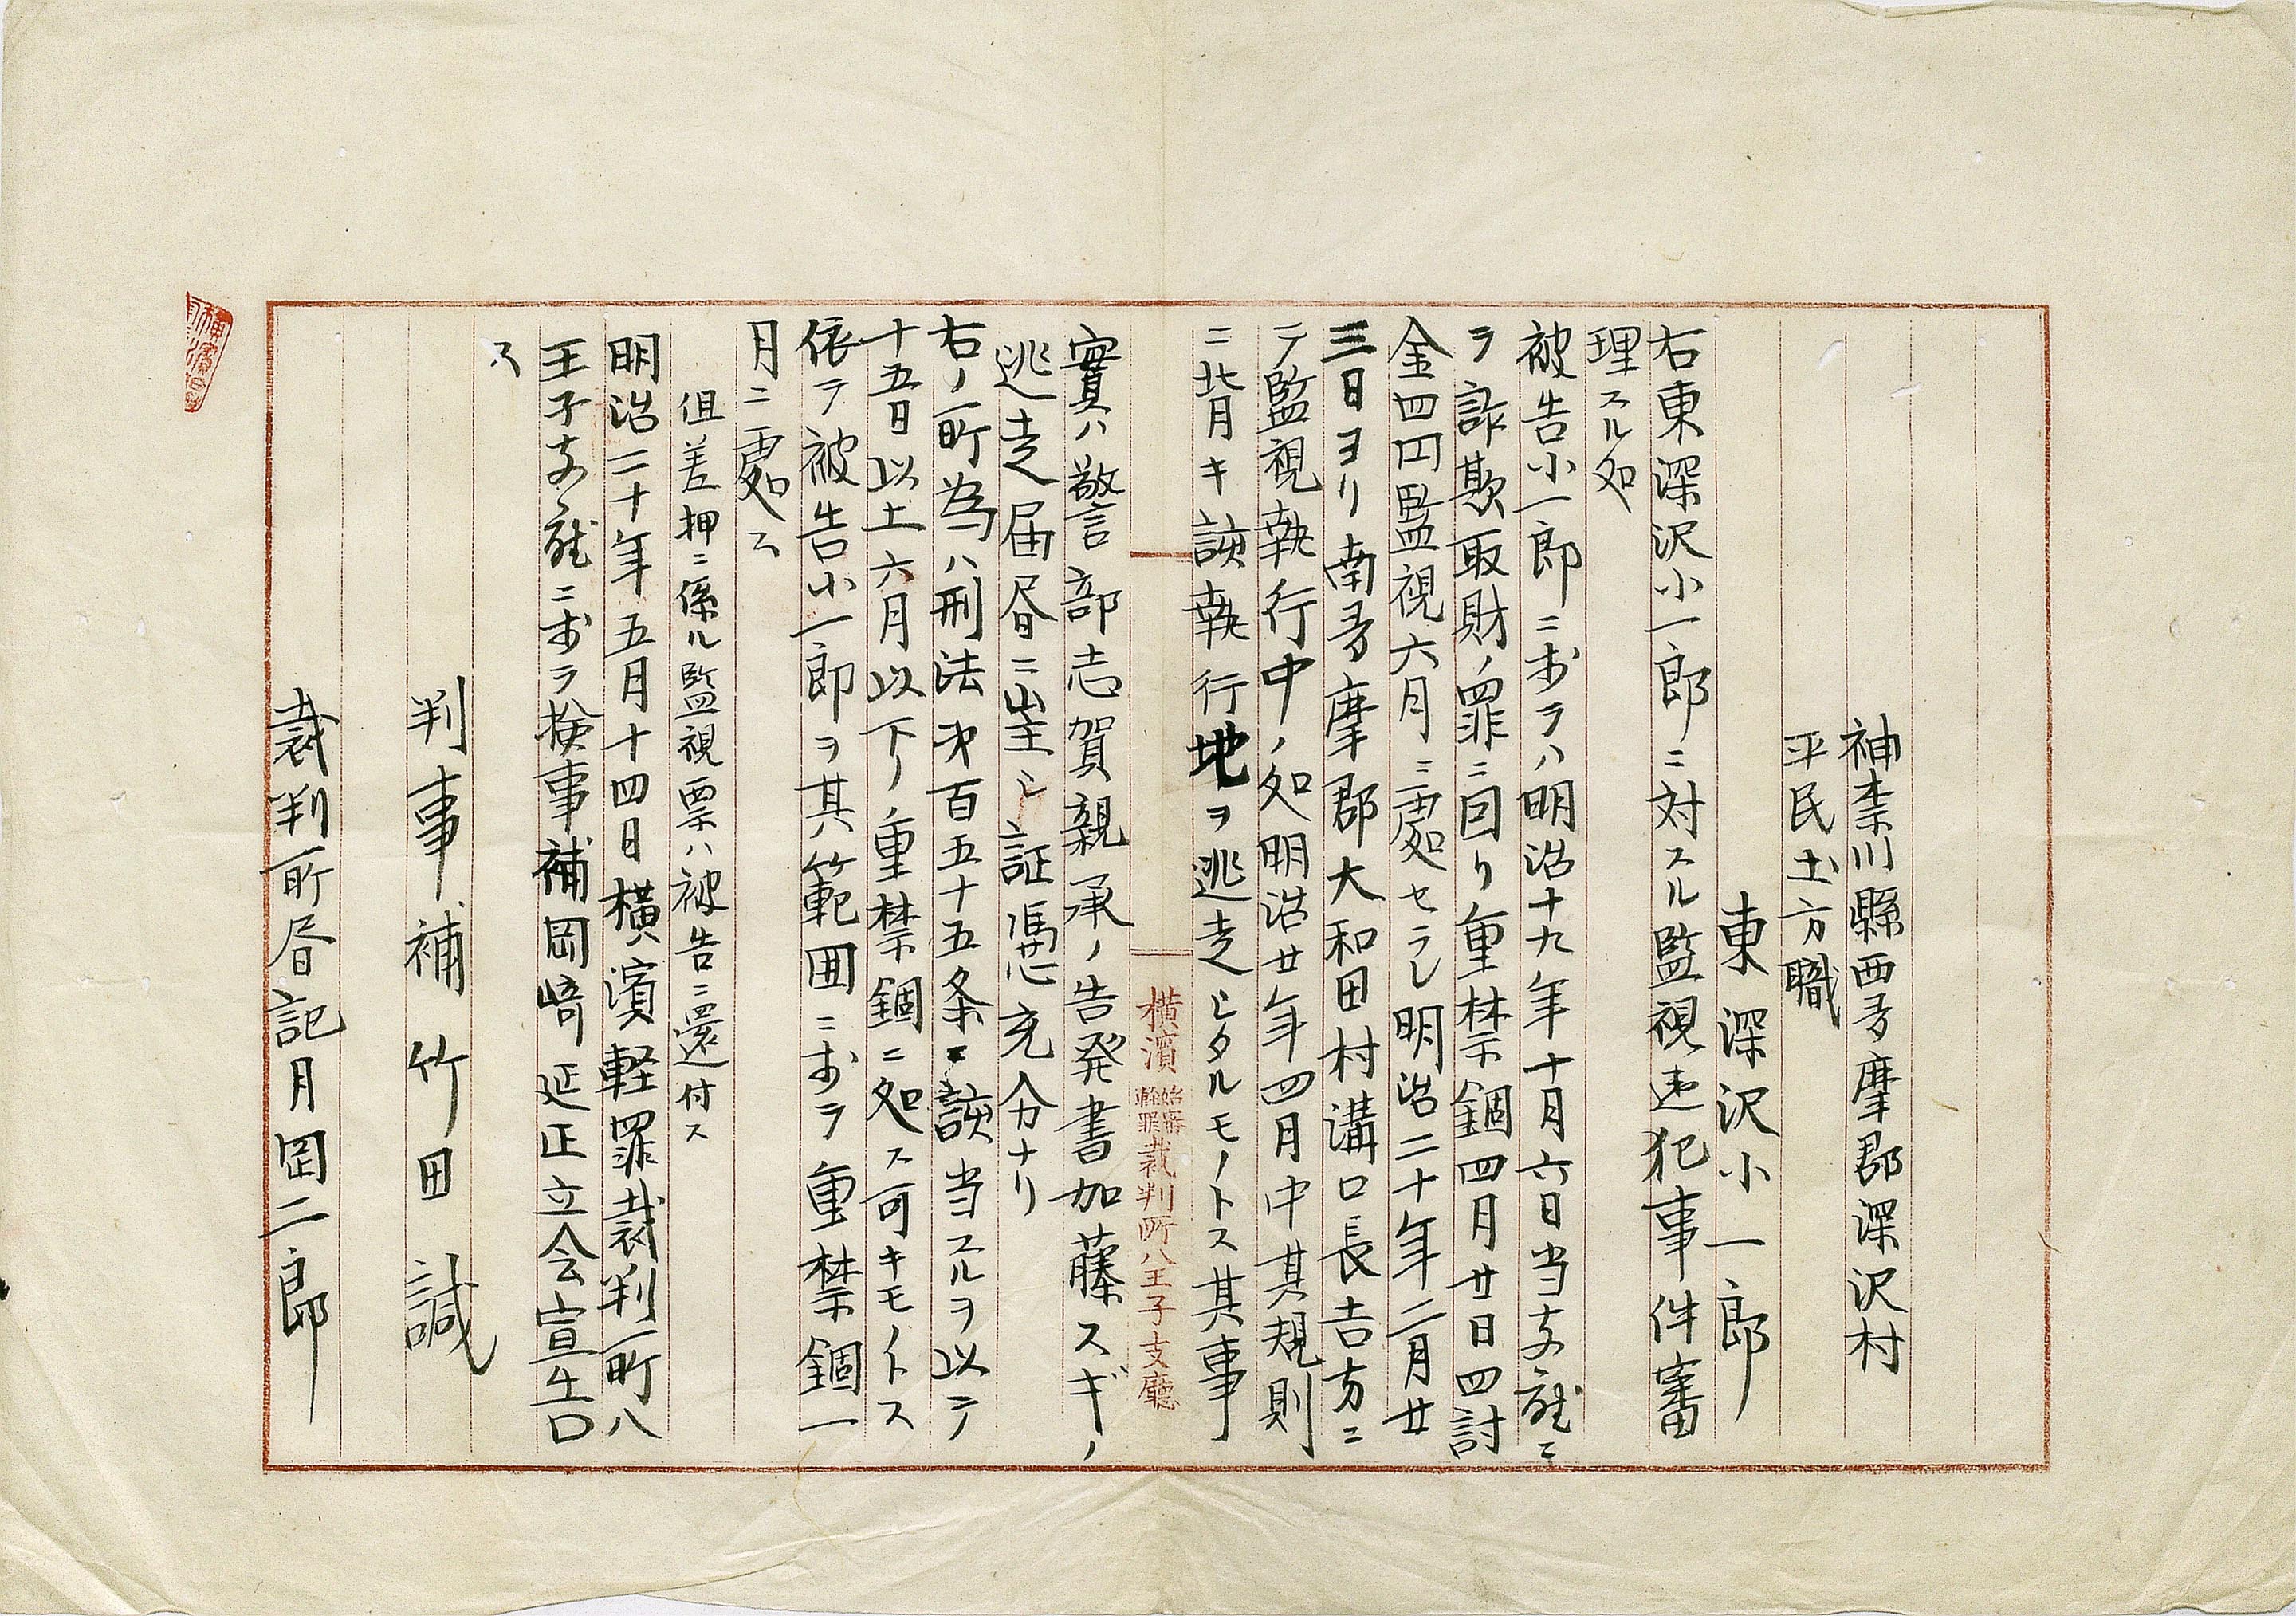 神奈川縣西多摩郡深沢村
平民土方職
東深沢小一郎
右東深沢小一郎ニ対スル監視違犯事件審
理スル処
被告小一郎ニ於テハ明治十九年十月六日当支廳ニ
テ詐欺取財ノ罪ニ因リ重禁錮四月廿日四討
金四円監視六月ニ處セラレ明治二十年二月廿
三日ヨリ南多摩郡大和田村溝口長吉方ニ
テ監視執行中ノ処明治廿年四月中其規則
ニ背キ該執行地ヲ逃走シタルモノトス其事
横濱始審軽罪裁判所八王子支廳
實ハ警部志賀親承ノ告発書加藤スギノ
逃走届書ニ徴シ証憑充分ナリ
右ノ所為ハ刑法第百五十五条ニ該当スルヲ以テ
十五日以上六月以下ノ重禁錮ニ処ス可キモノトス
依テ被告小一郎ヲ其範囲ニ於テ重禁錮一
月ニ處ス
但差押ニ係ル監視票ハ被告ニ還付ス
明治二十年五月十四日横濱軽罪裁判所八
王子支廳ニ於テ検事補岡崎延正立会宣告
ス
判事補竹田誠
裁判所書記月岡二郎